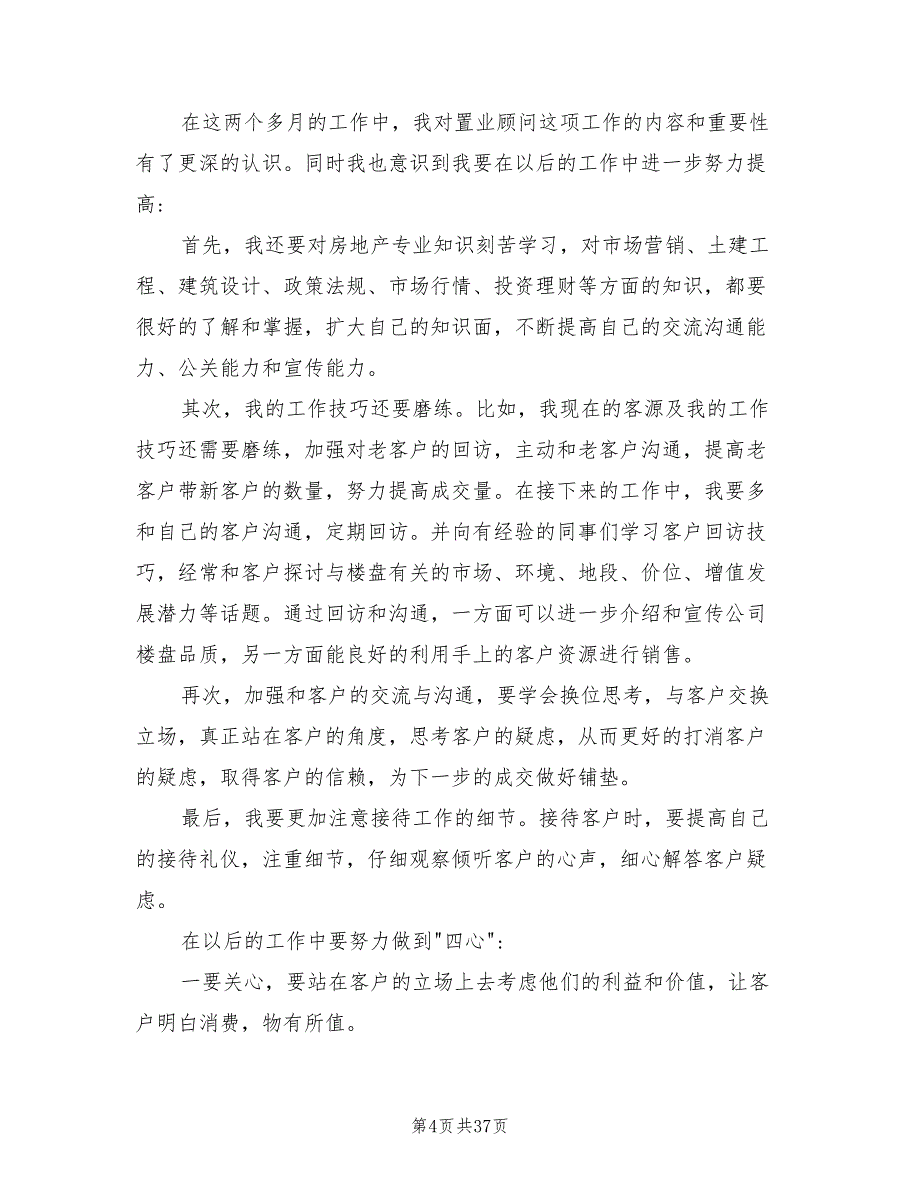 在这两个多月的工作中，我对置业顾问这项工作的内容和重要性
有了更深的认识。同时我也意识到我要在以后的工作中进一步努力提
高:
首先，我还要对房地产专业知识刻苦学习，对市场营销、土建工
程、建筑设计、政策法规、市场行情、投资理财等方面的知识，都要
很好的了解和掌握，扩大自己的知识面，不断提高自己的交流沟通能
力、公关能力和宣传能力。
其次，我的工作技巧还要磨练。比如，我现在的客源及我的工作
技巧还需要磨练，加强对老客户的回访，主动和老客户沟通，提高老
客户带新客户的数量，努力提高成交量。在接下来的工作中，我要多
和自己的客户沟通，定期回访。并向有经验的同事们学习客户回访技
巧，经常和客户探讨与楼盘有关的市场、环境、地段、价位、增值发
展潜力等话题。通过回访和沟通，一方面可以进一步介绍和宣传公司
楼盘品质，另一方面能良好的利用手上的客户资源进行销售。
再次，加强和客户的交流与沟通，要学会换位思考，与客户交换
立场，真正站在客户的角度，思考客户的疑虑，从而更好的打消客户
的疑虑，取得客户的信赖，为下一步的成交做好铺垫。
最后，我要更加注意接待工作的细节。接待客户时，要提高自己
的接待礼仪，注重细节，仔细观察倾听客户的心声，细心解答客户疑
虑。
在以后的工作中要努力做到"四心":
一要关心，要站在客户的立场上去考虑他们的利益和价值，让客
户明白消费，物有所值。
第4页共37页